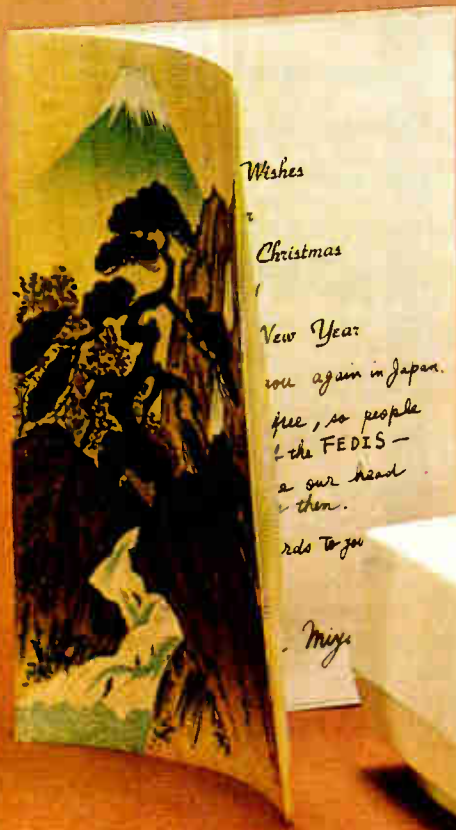 Wishes
Christmas
New Year
you again in Japan.
free, so people
the FEDIS—
our head
then.
rds to you